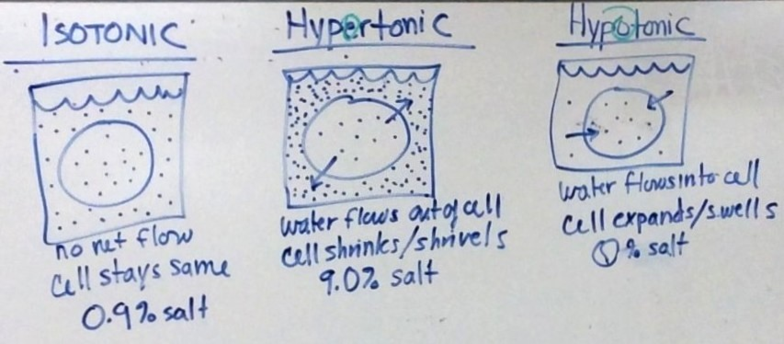 ISOTONIC
no net flow
Cell stays same
0.9% salt
Hypertonic
water flows out of cell
cell shrinks/shrivels
9.0% salt
Hypotonic
water flows into cell
cell expands/swells
0% salt